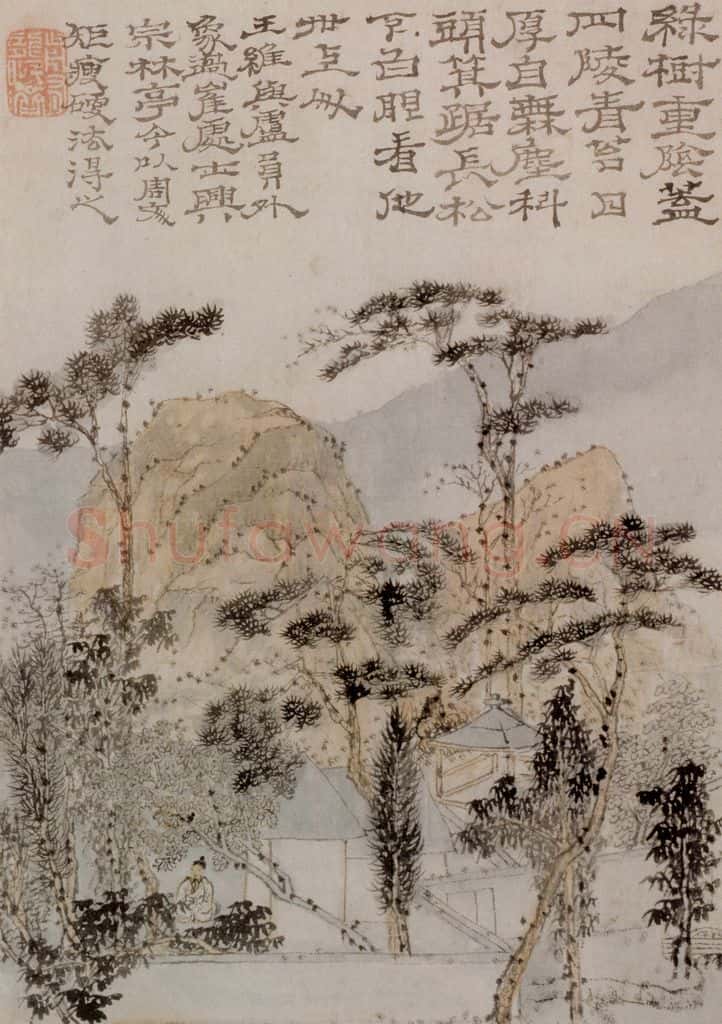 綠樹重陰蓋
四隣青苔日
厚自無塵科
頭箕踞長松
下白眼看他
世上人
王維與盧員外
象過崔處士興
宗林亭今以周文
矩瘦硬法得之
Shufawang.CN